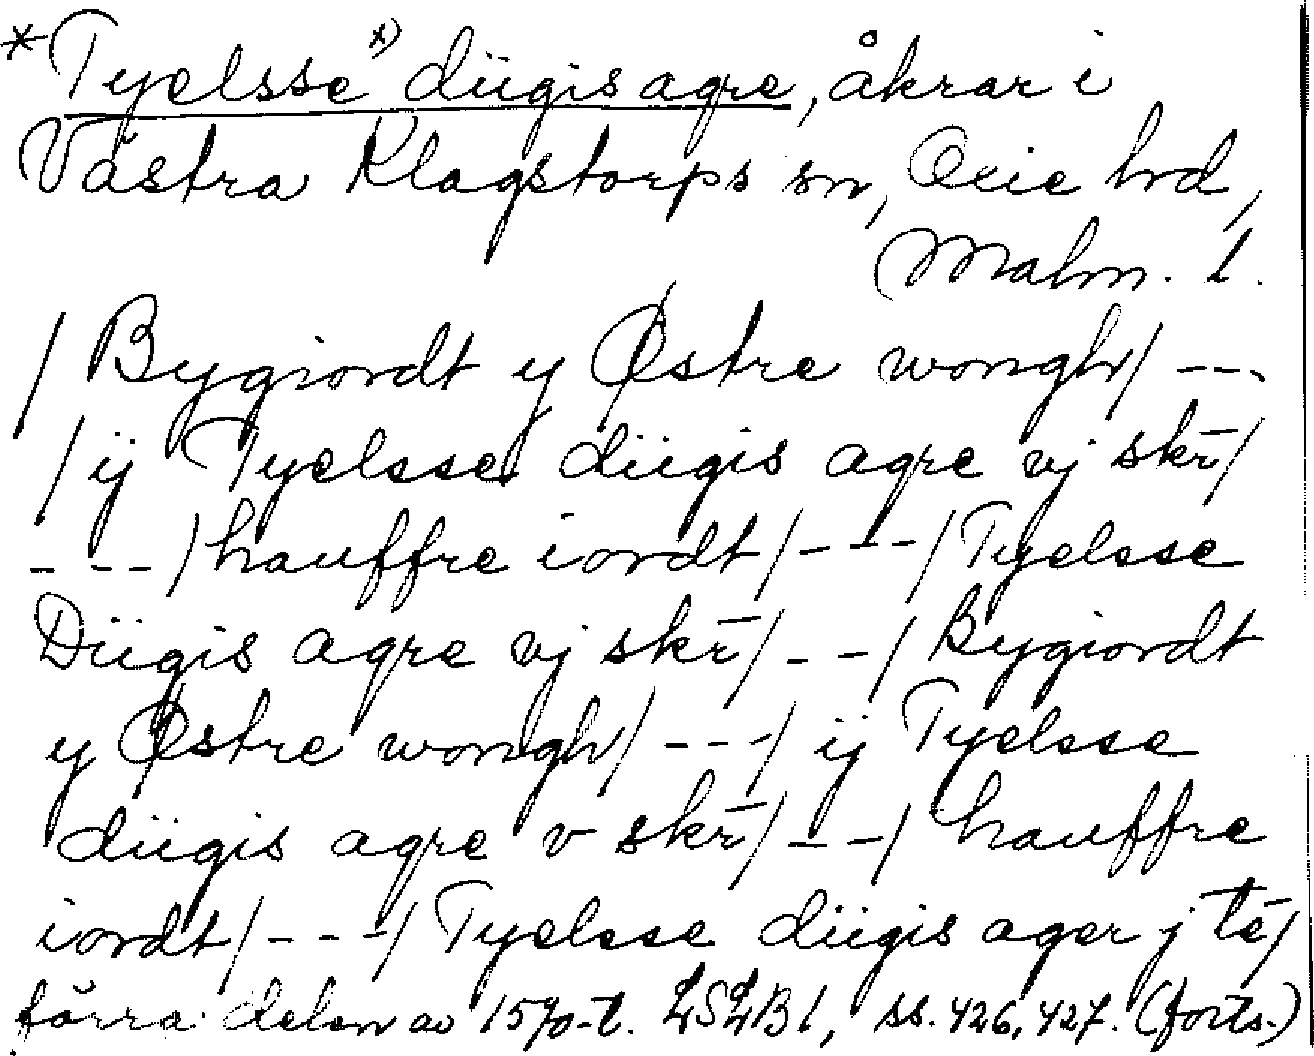 *Tyelsse x) dügis agre, åkrar i
Västra Klagstorps sn, Oxie hrd,
Malm. l.
/ Bygiordt y Østre wongh/ ---
/ ij Tyelsse dügis agre vj skr̄/
---/ hauffre iordt/ ---/ Tyelsse
Dügis agre vj skr̄/ ---/ Bygiordt
y Østre wongh/ ---/ ij Tyelsse
dügis agre v skr̄/ ---/ hauffre
iordt/ ---/ Tyelsse dügis ager j tē/
förra delen av 1570-t. LSLB 1, ss. 426, 427. (forts.)